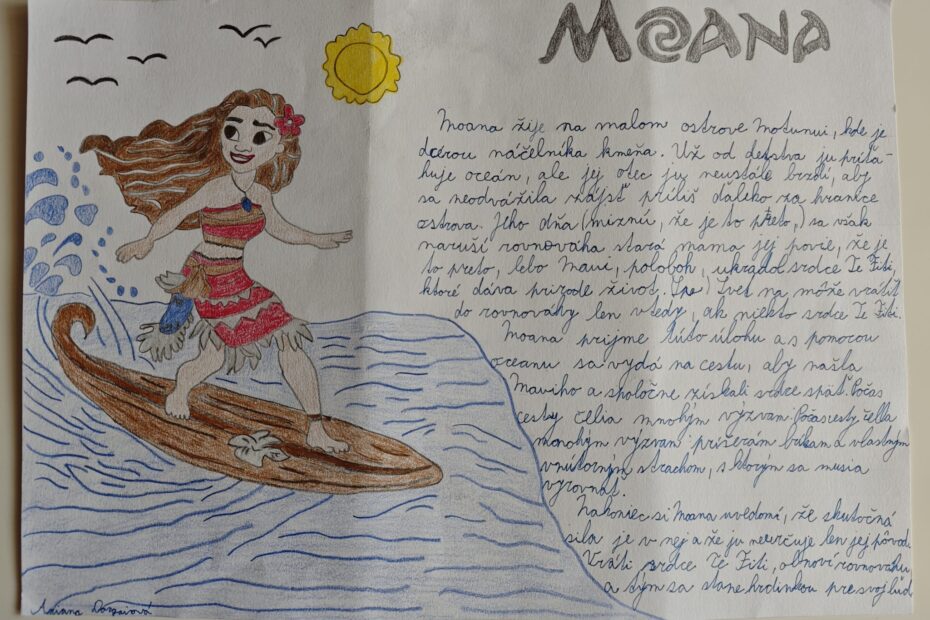 MOANA
Moana žije na malom ostrove Motunui, kde je
dcérou náčelníka kmeňa. Už od detstva ju priťa-
huje oceán, ale jej otec ju neustále brzdí, aby
sa neodvážila zájsť príliš ďaleko za hranice
ostrova. Jeho dňa (miznú, že je to preto,) sa však
naruší rovnováha stará mama jej povie, že je
to preto, lebo Maui, poloboh, ukradol srdce Te Fiti,
ktoré dáva prírode život. Svet na môže vrátiť
do rovnováhy len vtedy, ak niekto srdce Te Fiti.
Moana prijme túto úlohu a s pomocou
oceanu sa vydá na cestu, aby našla
Mauiho a spoločne získali srdce späť. Počas
cesty čelia mnohým výzvam Počas cesty čelia
mnohým výzvam príšerám búrkam a vlastným
vnútorným strachom, s ktorým sa musia
vyrovnať.
Nakoniec si Moana uvedomí, že skutočná
sila je v nej a že ju neurčuje len jej pôvod.
Vráti srdce Te Fiti, obnoví rovnováhu
a tým sa stane hrdinkou pre svoj ľud
Ariana